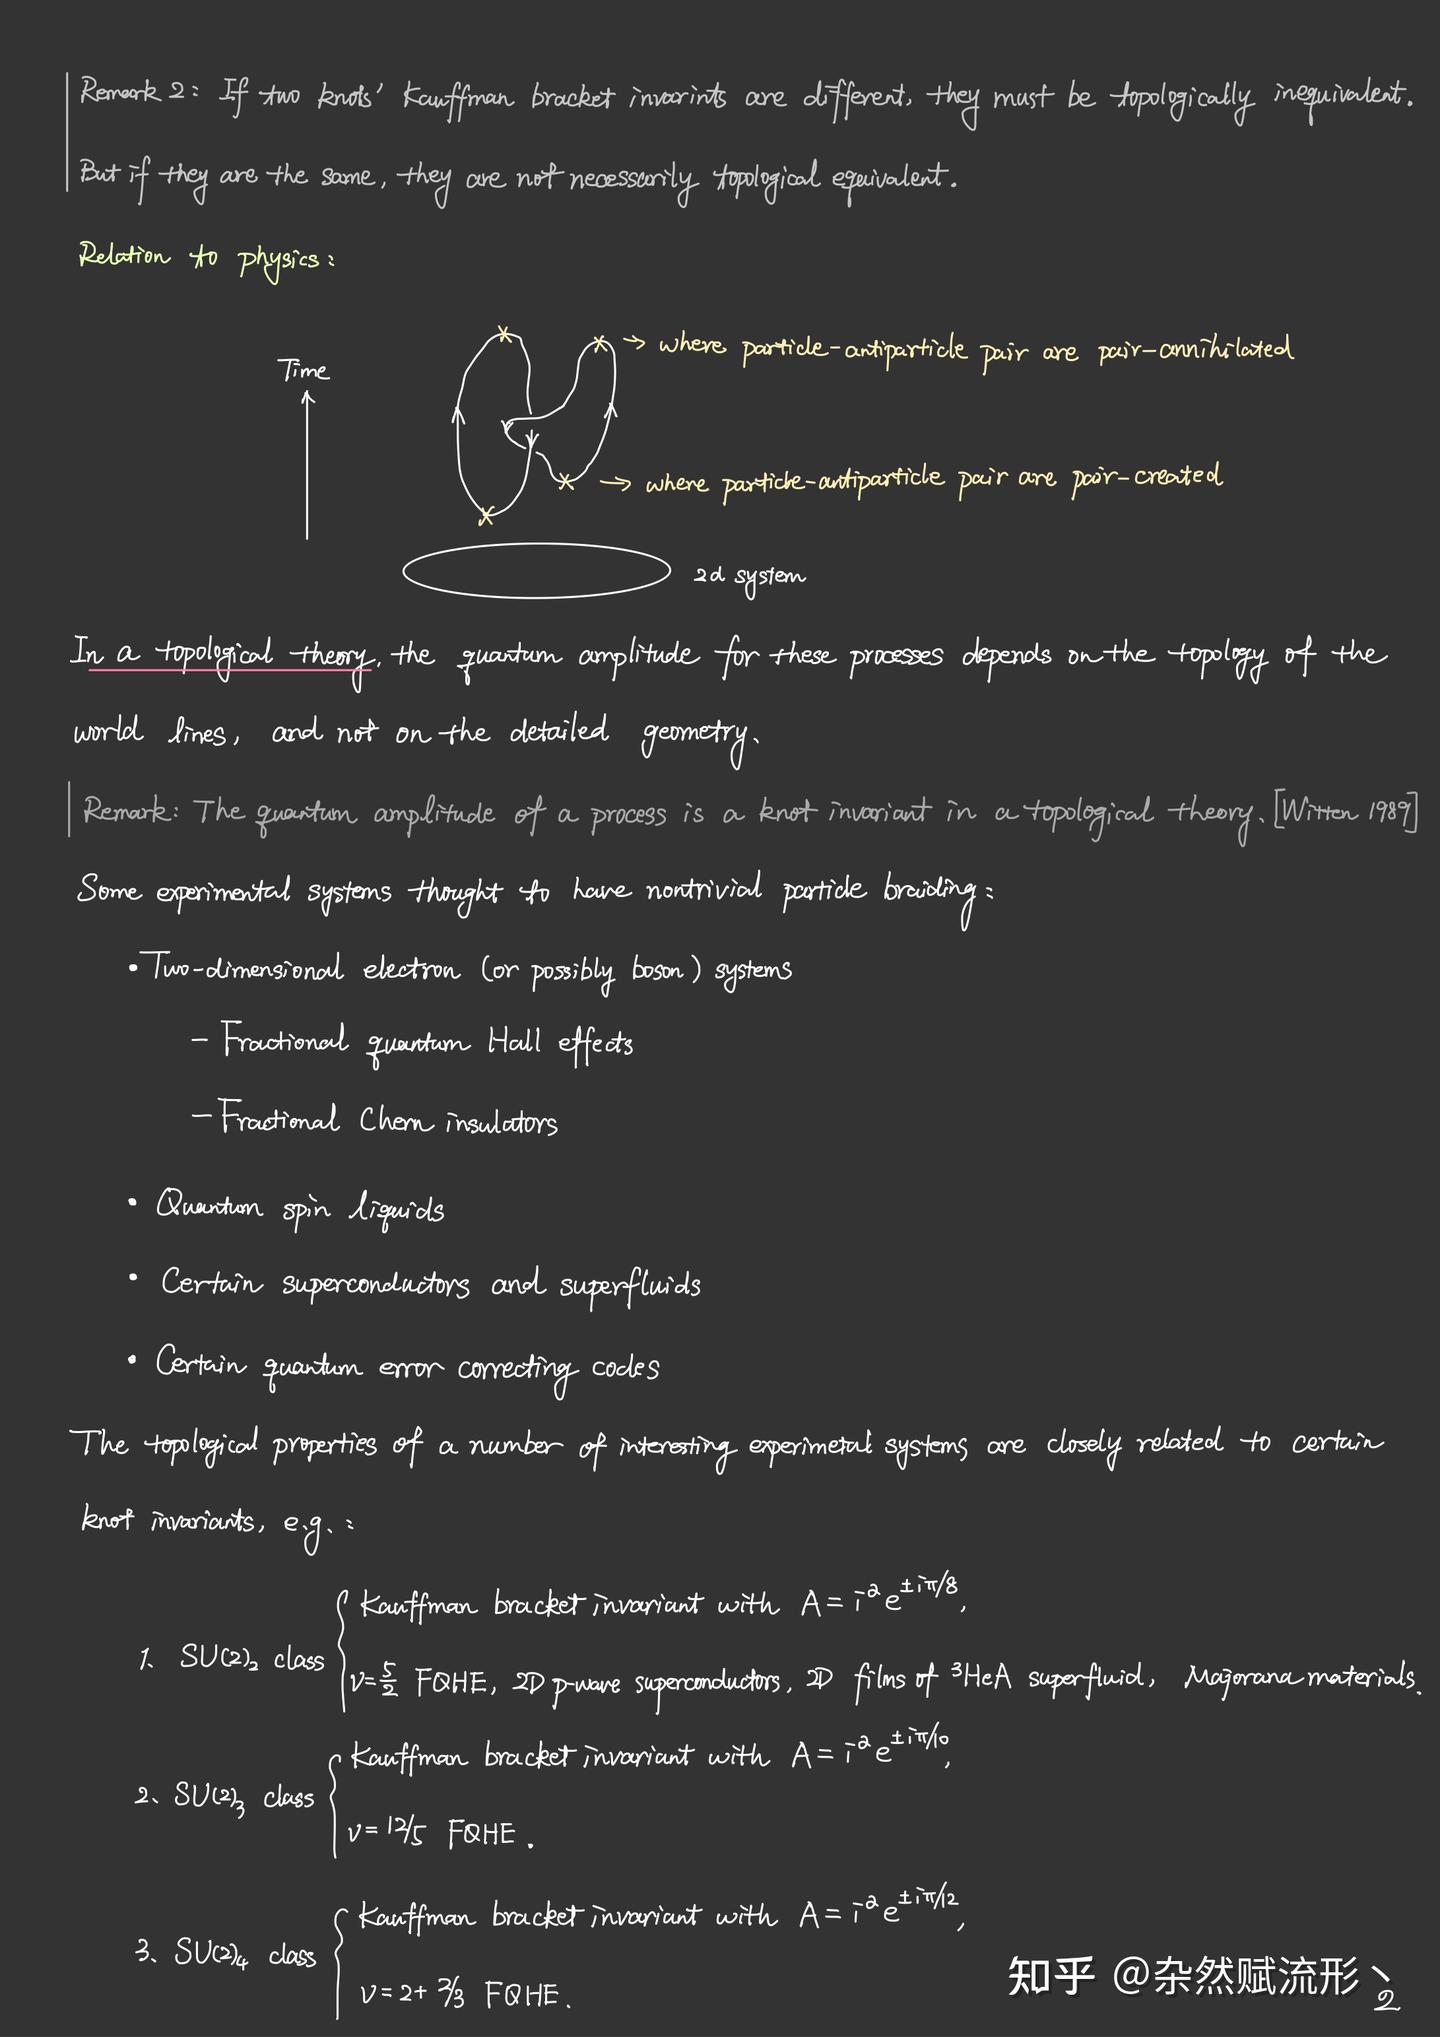 Remark 2: If two knots' Kauffman bracket invarints are different, they must be topologically inequivalent.
But if they are the same, they are not necessarily topological equivalent.
Relation to physics:
Time
→ where particle-antiparticle pair are pair-annihilated
→ where particle-antiparticle pair are pair-created
2d system
In a topological theory, the quantum amplitude for these processes depends on the topology of the
world lines, and not on the detailed geometry.
Remark: The quantum amplitude of a process is a knot invariant in a topological theory. [Witten 1989]
Some experimental systems thought to have nontrivial particle braiding:
• Two-dimensional electron (or possibly boson) systems
– Fractional quantum Hall effects
– Fractional Chern insulators
• Quantum spin liquids
• Certain superconductors and superfluids
• Certain quantum error correcting codes
The topological properties of a number of interesting experimetal systems are closely related to certain
knot invariants, e.g. :
1. SU(2)₂ class
Kauffman bracket invariant with A = i^a e^{±iπ/8},
ν=5/2 FQHE, 2D p-wave superconductors, 2D films of ³HeA superfluid, Majorana materials.
2. SU(2)₃ class
Kauffman bracket invariant with A = i^a e^{±iπ/10},
ν=12/5 FQHE.
3. SU(2)₄ class
Kauffman bracket invariant with A = i^a e^{±iπ/12},
ν=2+2/3 FQHE.
知乎 @杂然赋流形丶
2